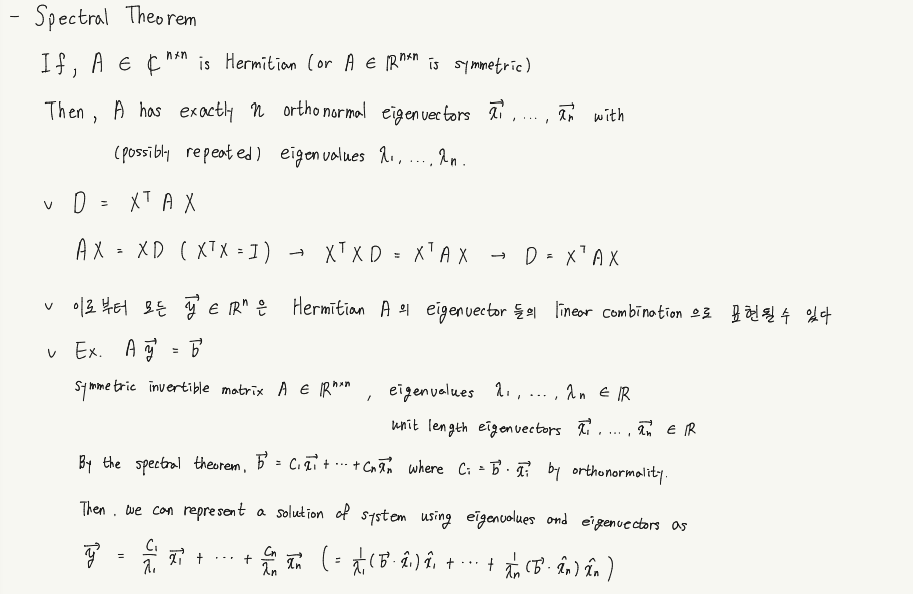 - Spectral Theorem
If, A ∈ ℂⁿˣⁿ is Hermitian (or A ∈ ℝⁿˣⁿ is symmetric)
Then, A has exactly n orthonormal eigenvectors x⃗₁, ..., x⃗ₙ with
(possibly repeated) eigenvalues λ₁, ..., λₙ.
∨ D = Xᵀ A X
AX = XD (XᵀX = I) → XᵀXD = XᵀAX → D = XᵀAX
∨ 이로부터 모든 y⃗ ∈ ℝⁿ은 Hermitian A의 eigenvector들의 linear combination으로 표현될 수 있다
∨ Ex. A y⃗ = b⃗
symmetric invertible matrix A ∈ ℝⁿˣⁿ, eigenvalues λ₁, ..., λₙ ∈ ℝ
unit length eigenvectors x⃗₁, ..., x⃗ₙ ∈ ℝ
By the spectral theorem, b⃗ = c₁x⃗₁ + ... + cₙx⃗ₙ where cᵢ = b⃗ · x⃗ᵢ by orthonormality.
Then, we can represent a solution of system using eigenvalues and eigenvectors as
y⃗ = c₁/λ₁ x⃗₁ + ... + cₙ/λₙ x⃗ₙ ( = 1/λ₁ (b⃗ · x̂₁) x̂₁ + ... + 1/λₙ (b⃗ · x̂ₙ) x̂ₙ )